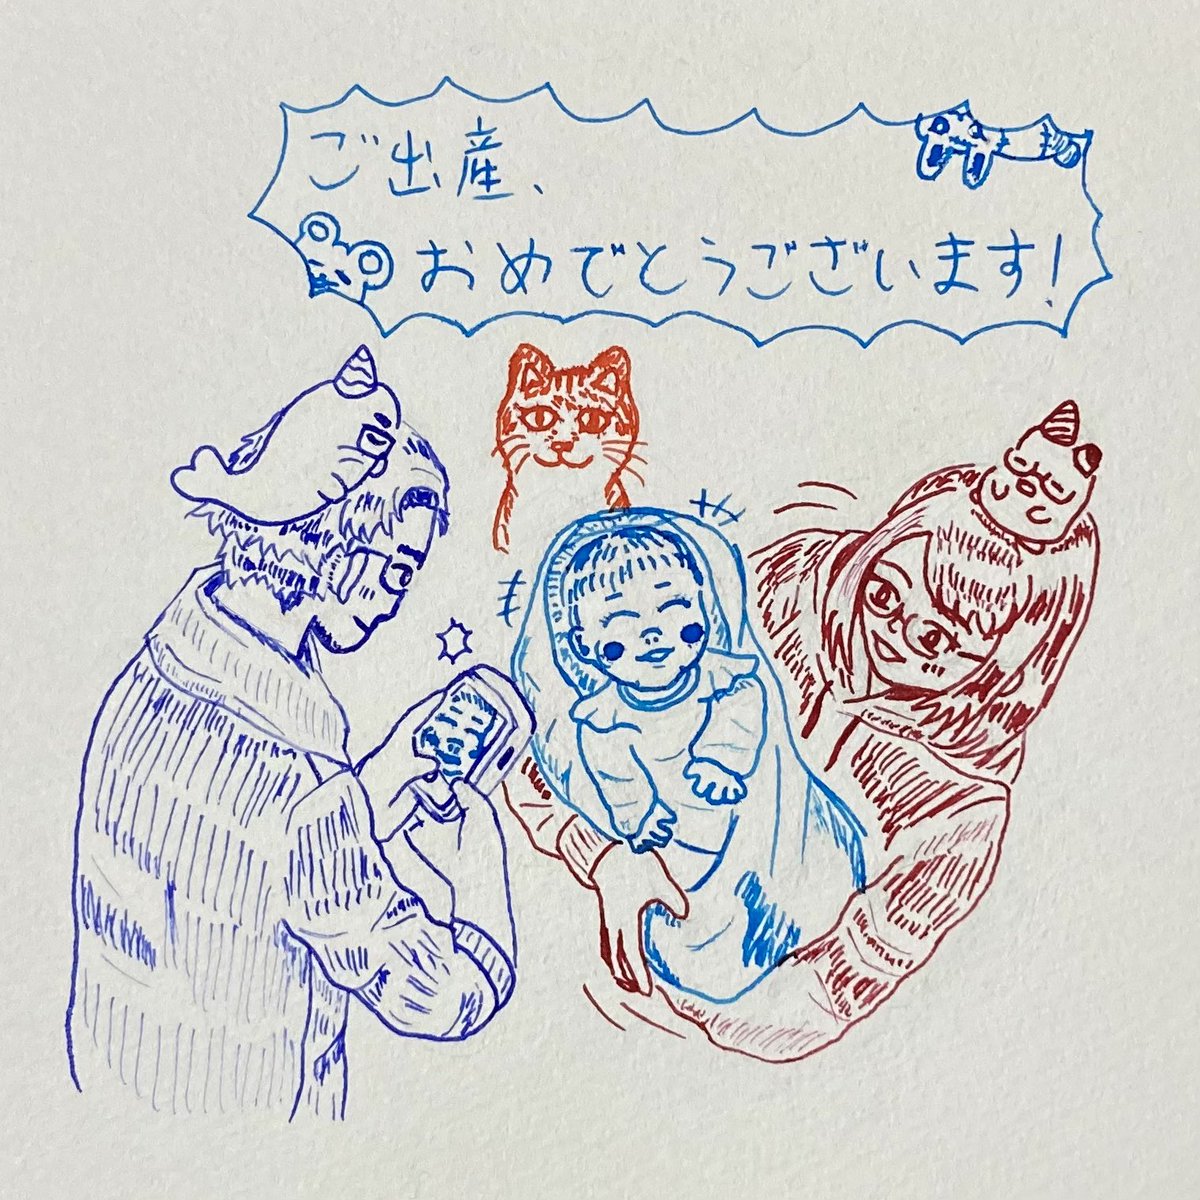 ご出産、
おめでとうございます!